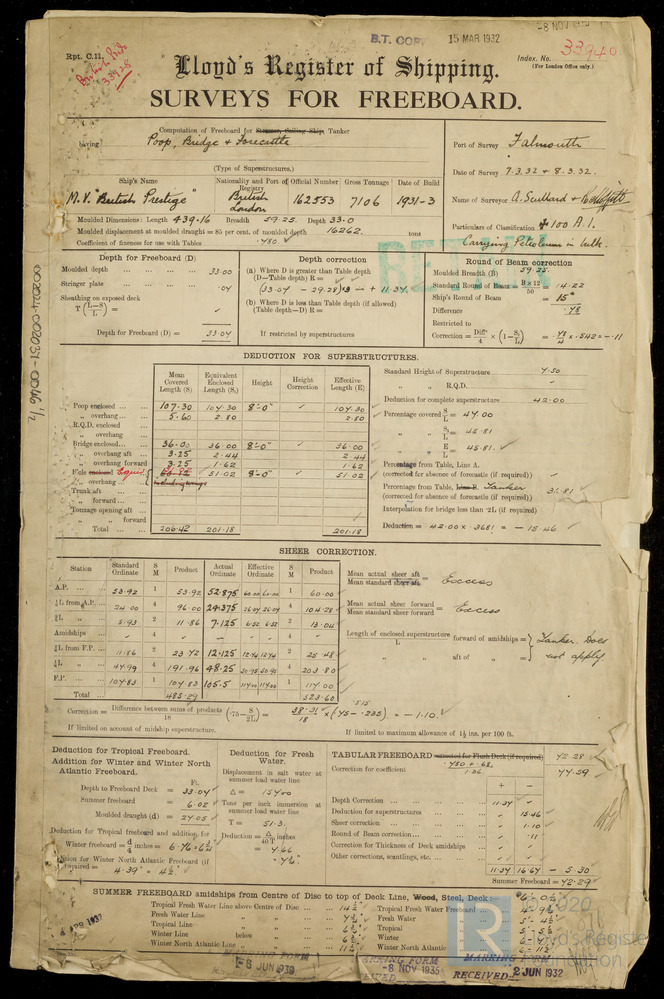 -8 NOV
B.T. COPY 15 MAR 1932
Rpt. C.11. Index. No. 33940
British Ptge 33928 (For London Office only.)
Lloyd's Register of Shipping.
SURVEYS FOR FREEBOARD.
Computation of Freeboard for Steamer, Sailing Ship, Tanker
having Poop, Bridge & Forecastle
(Type of Superstructures.)
Port of Survey Falmouth
Date of Survey 7.3.32 & 8.3.32.
Ship's Name Nationality and Port of Registry Official Number Gross Tonnage Date of Build
M.V. "British Prestige" British London 162553 7106 1931-3
Name of Surveyor A. Scullard &
Moulded Dimensions: Length 439.16 Breadth 59.25 Depth 33.0
Moulded displacement at moulded draught = 85 per cent. of moulded depth 16262. tons
Coefficient of fineness for use with Tables .780
Particulars of Classification +100 A.1.
Carrying Petroleum in bulk.
RETAIN
Depth for Freeboard (D)
Moulded depth 33.00
Stringer plate .04
Sheathing on exposed deck
T (L-S / L) =
Depth for Freeboard (D) = 33.04
Depth correction
(a) Where D is greater than Table depth
(D-Table depth) R =
(33.04 - 29.28) 3 = + 11.34
(b) Where D is less than Table depth (if allowed)
(Table depth-D) R =
If restricted by superstructures
Round of Beam correction
Moulded Breadth (B) 59.25
Standard Round of Beam = B x 12 / 50 = 14.22
Ship's Round of Beam = 15"
Difference .78
Restricted to
Correction = Diff / 4 x (1 - S₁ / L) = .78 / 4 x .542 = -.11
DEDUCTION FOR SUPERSTRUCTURES.
Mean Covered Length (S) Equivalent Enclosed Length (S₁) Height Height Correction Effective Length (E)
Poop enclosed 107.30 104.30 8'-0" 104.30
" overhang 5.60 2.80 2.80
R.Q.D. enclosed
" overhang
Bridge enclosed 36.00 36.00 8'-0" 36.00
" overhang aft 3.25 2.44 2.44
" overhang forward 3.25 1.62 1.62
F'cle enclosed Equiv. 51.02 8'-0" 51.02
" overhang
Trunk aft
" forward
Tonnage opening aft
" " forward
Total 206.42 201.18 201.18
Standard Height of Superstructure 7.50
" " R.Q.D.
Deduction for complete superstructure 42.00
Percentage covered S / L = 47.00
" " S₁ / L = 45.81
" " E / L = 45.81
Percentage from Table, Line A.
(corrected for absence of forecastle (if required))
Percentage from Table, Line B. Tanker 36.81
(corrected for absence of forecastle (if required))
Interpolation for bridge less than .2L (if required)
Deduction = 42.00 x .3681 = - 15.46
SHEER CORRECTION.
Station Standard Ordinate S M Product Actual Ordinate Effective Ordinate S M Product
A.P. 53.92 1 53.92 52.875 60.00 60.00 1 60.00
⅙L from A.P. 24.00 4 96.00 24.375 26.07 26.07 4 104.28
⅓L " 5.93 2 11.86 7.125 6.52 6.52 2 13.04
Amidships - 4 - - - 4 -
⅓L from F.P. 11.86 2 23.72 12.125 12.74 12.74 2 25.48
⅙L " 47.99 4 191.96 48.25 50.95 50.95 4 203.80
F.P. 107.83 1 107.83 105.5 114.00 114.00 1 114.00
Total 485.29 523.60
Mean actual sheer aft / Mean standard sheer aft = Excess
Mean actual sheer forward / Mean standard sheer forward = Excess
Length of enclosed superstructure / L forward of amidships =
" " aft of " =
Tanker. Does not apply
Correction = Difference between sums of products / 18 (.75 - S / 2L) = 38.31 / 18 x (.75 - .235) = -1.10
.515
If limited on account of midship superstructure. If limited to maximum allowance of 1½ ins. per 100 ft.
Deduction for Tropical Freeboard.
Addition for Winter and Winter North Atlantic Freeboard.
Ft.
Depth to Freeboard Deck = 33.04
Summer freeboard = 6.02
Moulded draught (d) = 27.05
Deduction for Tropical freeboard and addition for Winter freeboard = d / 4 inches = 6.76 = 6¾"
Addition for Winter North Atlantic Freeboard (if required) = 4.39 = 4½"
Deduction for Fresh Water.
Displacement in salt water at summer load water line
Δ = 15400
Tons per inch immersion at summer load water line
T = 51.3
Deduction = Δ / 40 T inches
= 7.66
= 7½"
TABULAR FREEBOARD corrected for Flush Deck (if required) 72.28
Correction for coefficient .780 + .68 / 1.36 77.59
+ -
Depth Correction 11.34
Deduction for superstructures 15.46
Sheer correction 1.10
Round of Beam correction .11
Correction for Thickness of Deck amidships
Other corrections, scantlings, etc.
11.34 16.67 - 5.30
Summer Freeboard = 72.29
SUMMER FREEBOARD amidships from Centre of Disc to top of Deck Line, Wood, Steel, Deck:
Tropical Fresh Water Line above Centre of Disc 14¼ Tropical Fresh Water Freeboard 4'-9¾
Fresh Water Line " " Fresh Water
Tropical Line " " Tropical
Winter Line below " Winter
Winter North Atlantic Line " " Winter North Atlantic
4 APR 1932
MARKING FORM
-8 JUN 1939
MARKING FORM
-8 NOV 1935
MARKING FORM
RECEIVED 2 JUN 1932
002024-002031-0046 1/2
R
© 2020
Lloyd's Register
Foundation